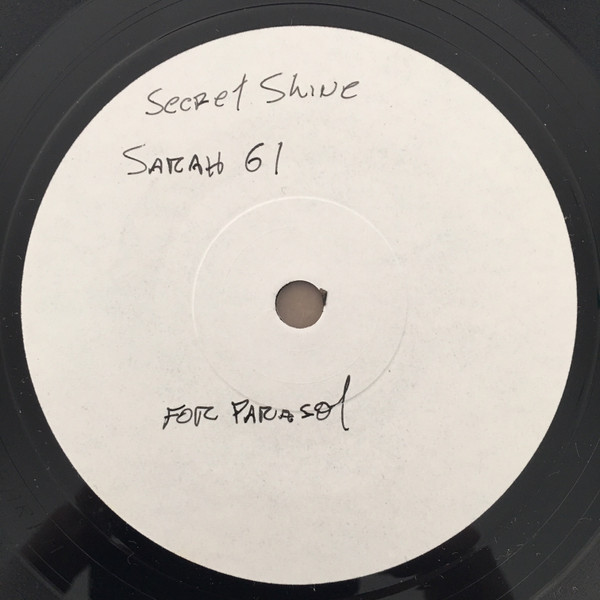 Secret Shine
SARAH 61
FOR PARASOl